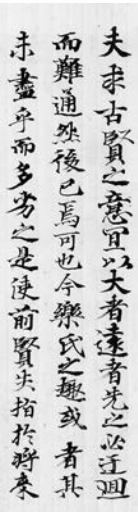 夫求古賢之意冝以大者遠者先之必迂迴
而難通然後已焉可也今樂氏之趣或者其
未盡乎而多劣之是使前賢失指於將來